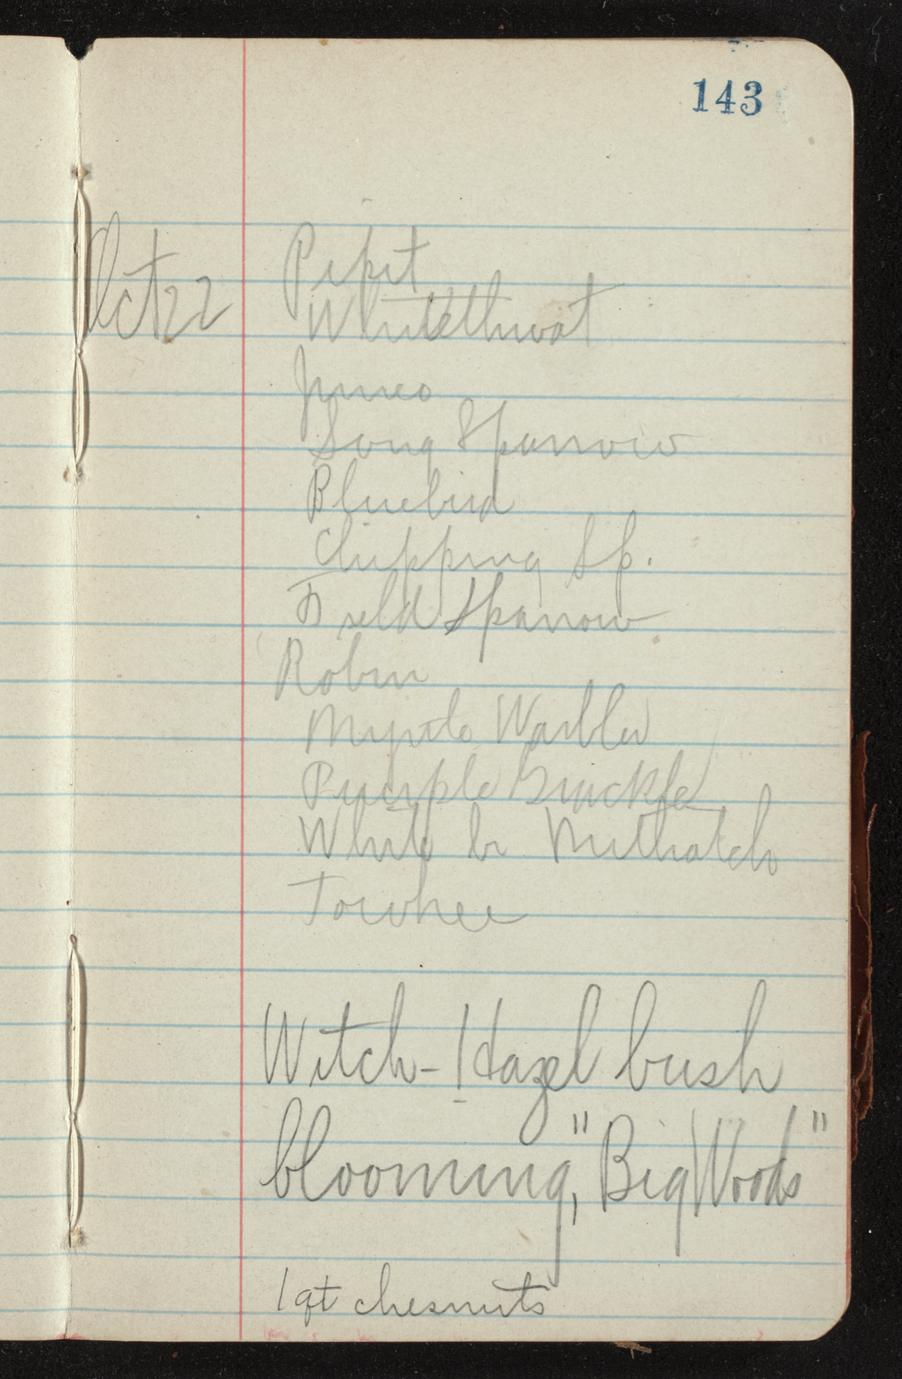 143
Oct 22 Pipit
Whitethroat
Junco
Song Sparrow
Bluebird
Chipping Sp.
Field Sparrow
Robin
Myrtle Warbler
Purple Grackle
White br Nuthatch
Towhee
Witch-Hazel bush
blooming, "Big Woods"
1 qt chesnuts